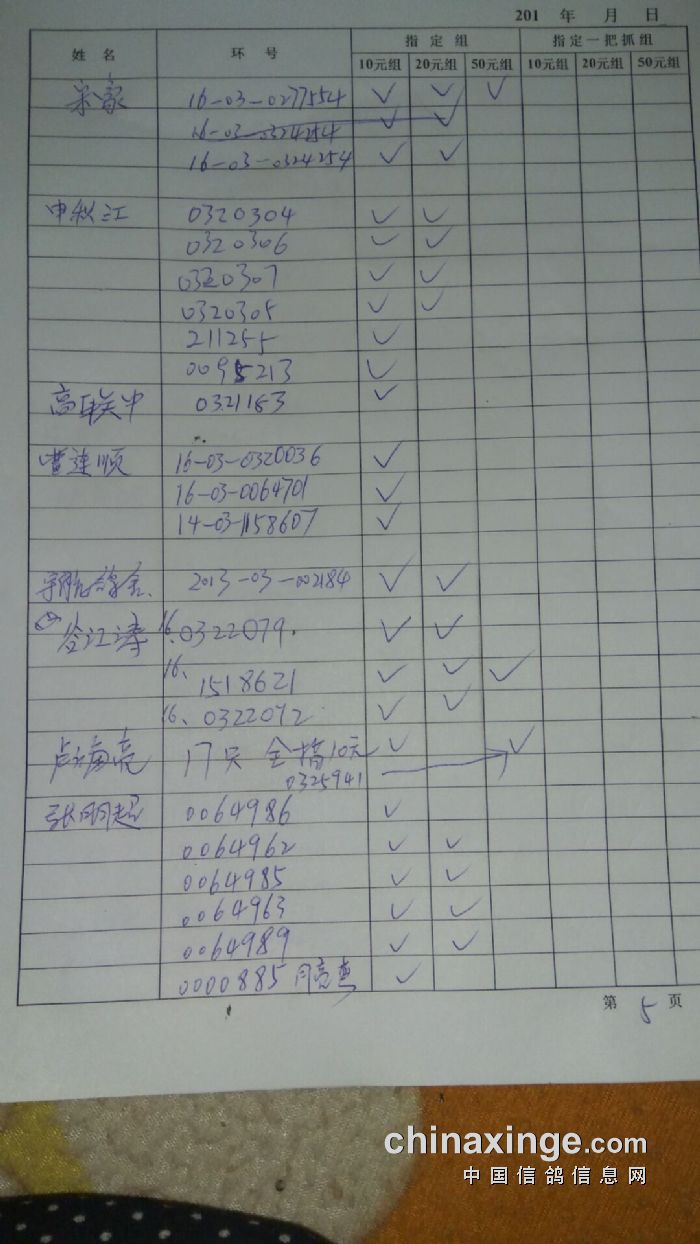 201 年 月 日
姓 名 环 号 指 定 组 指定一把抓组
10元组 20元组 50元组 10元组 20元组 50元组
16-03-0277554 ✓ ✓ ✓
16-03-0324254 ✓ ✓
16-03-0324254 ✓ ✓
申秋江 0320304 ✓ ✓
0320306 ✓ ✓
0320307 ✓ ✓
0320305 ✓ ✓
211255 ✓
0095213 ✓
高联关中 0321183 ✓
曹连顺 16-03-0320036 ✓
16-03-0064701 ✓
14-03-1158607 ✓
2013-03-002184 ✓ ✓
谷江涛 16.0322079. ✓ ✓
16、1518621 ✓ ✓ ✓
16、0322072 ✓ ✓
17只 全指10元 ✓ ✓
0325941
张明超 0064986 ✓
0064962 ✓ ✓
0064985 ✓ ✓
0064963 ✓ ✓
0064989 ✓ ✓
0000885 ✓
第 5 页
chinaxinge.com
中国信鸽信息网